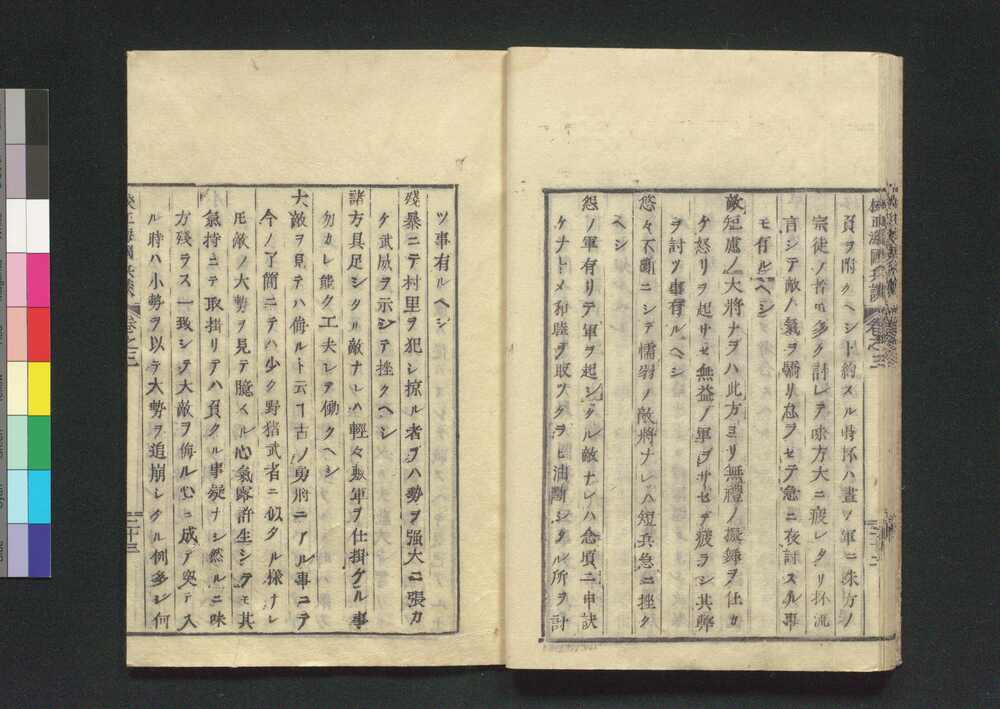 負ヲ附クヘシト約スル時杯ハ晝ツ軍ニ味方ノ
宗徒ノ者モ多ク討レテ味方大ニ疲レタリ杯流
言シテ敵ノ氣ヲ驕リ怠ヲセテ急ニ夜討スル事
モ有ルヘシ
敵短慮ノ大將ナラハ此方ヨリ無禮ノ振舞ヲ仕カ
ケ怒リヲ起サセ無益ノ軍ヲサセテ疲ラシ其弊
ヲ討ツ事有ルヘシ
悠々不斷ニシテ懦弱ノ敵將ナレハ短兵急ニ挫ク
ヘシ
怨ノ軍有リテ軍ヲ起シタル敵ナレハ念頃ニ申訣
ケナトノ和睦ヲ取ツクヲヒ油斷シタル所ヲ討
ツ事有ルヘシ
殘暴ニテ村里ヲ犯シ掠ル者ヲハ勢ヲ强大ニ張カ
ケ武威ヲ示シテ挫クヘシ
諸方具足シタル敵ナレハ輕々敷軍ヲ仕掛ケル事
勿カレ能ク工夫レテ働クヘシ
大敵ヲ見テハ侮ルト云フ古ノ勇將ニアル事ニテ
今ノ了簡ニテハ少ク野猪武者ニ似タル樣ナレ
𪜈敵ノ大勢ヲ見テ臆スル心氣露許生シテモ其
氣持ニテ取掛リテハ負クル事疑ナシ然ルニ味
方殘ラス一致シテ大敵ヲ侮ル心ニ成テ突テ入
ル時ハ小勢ヲ以テ大勢ヲ追崩シタル例多シ何
卷之三
三十三